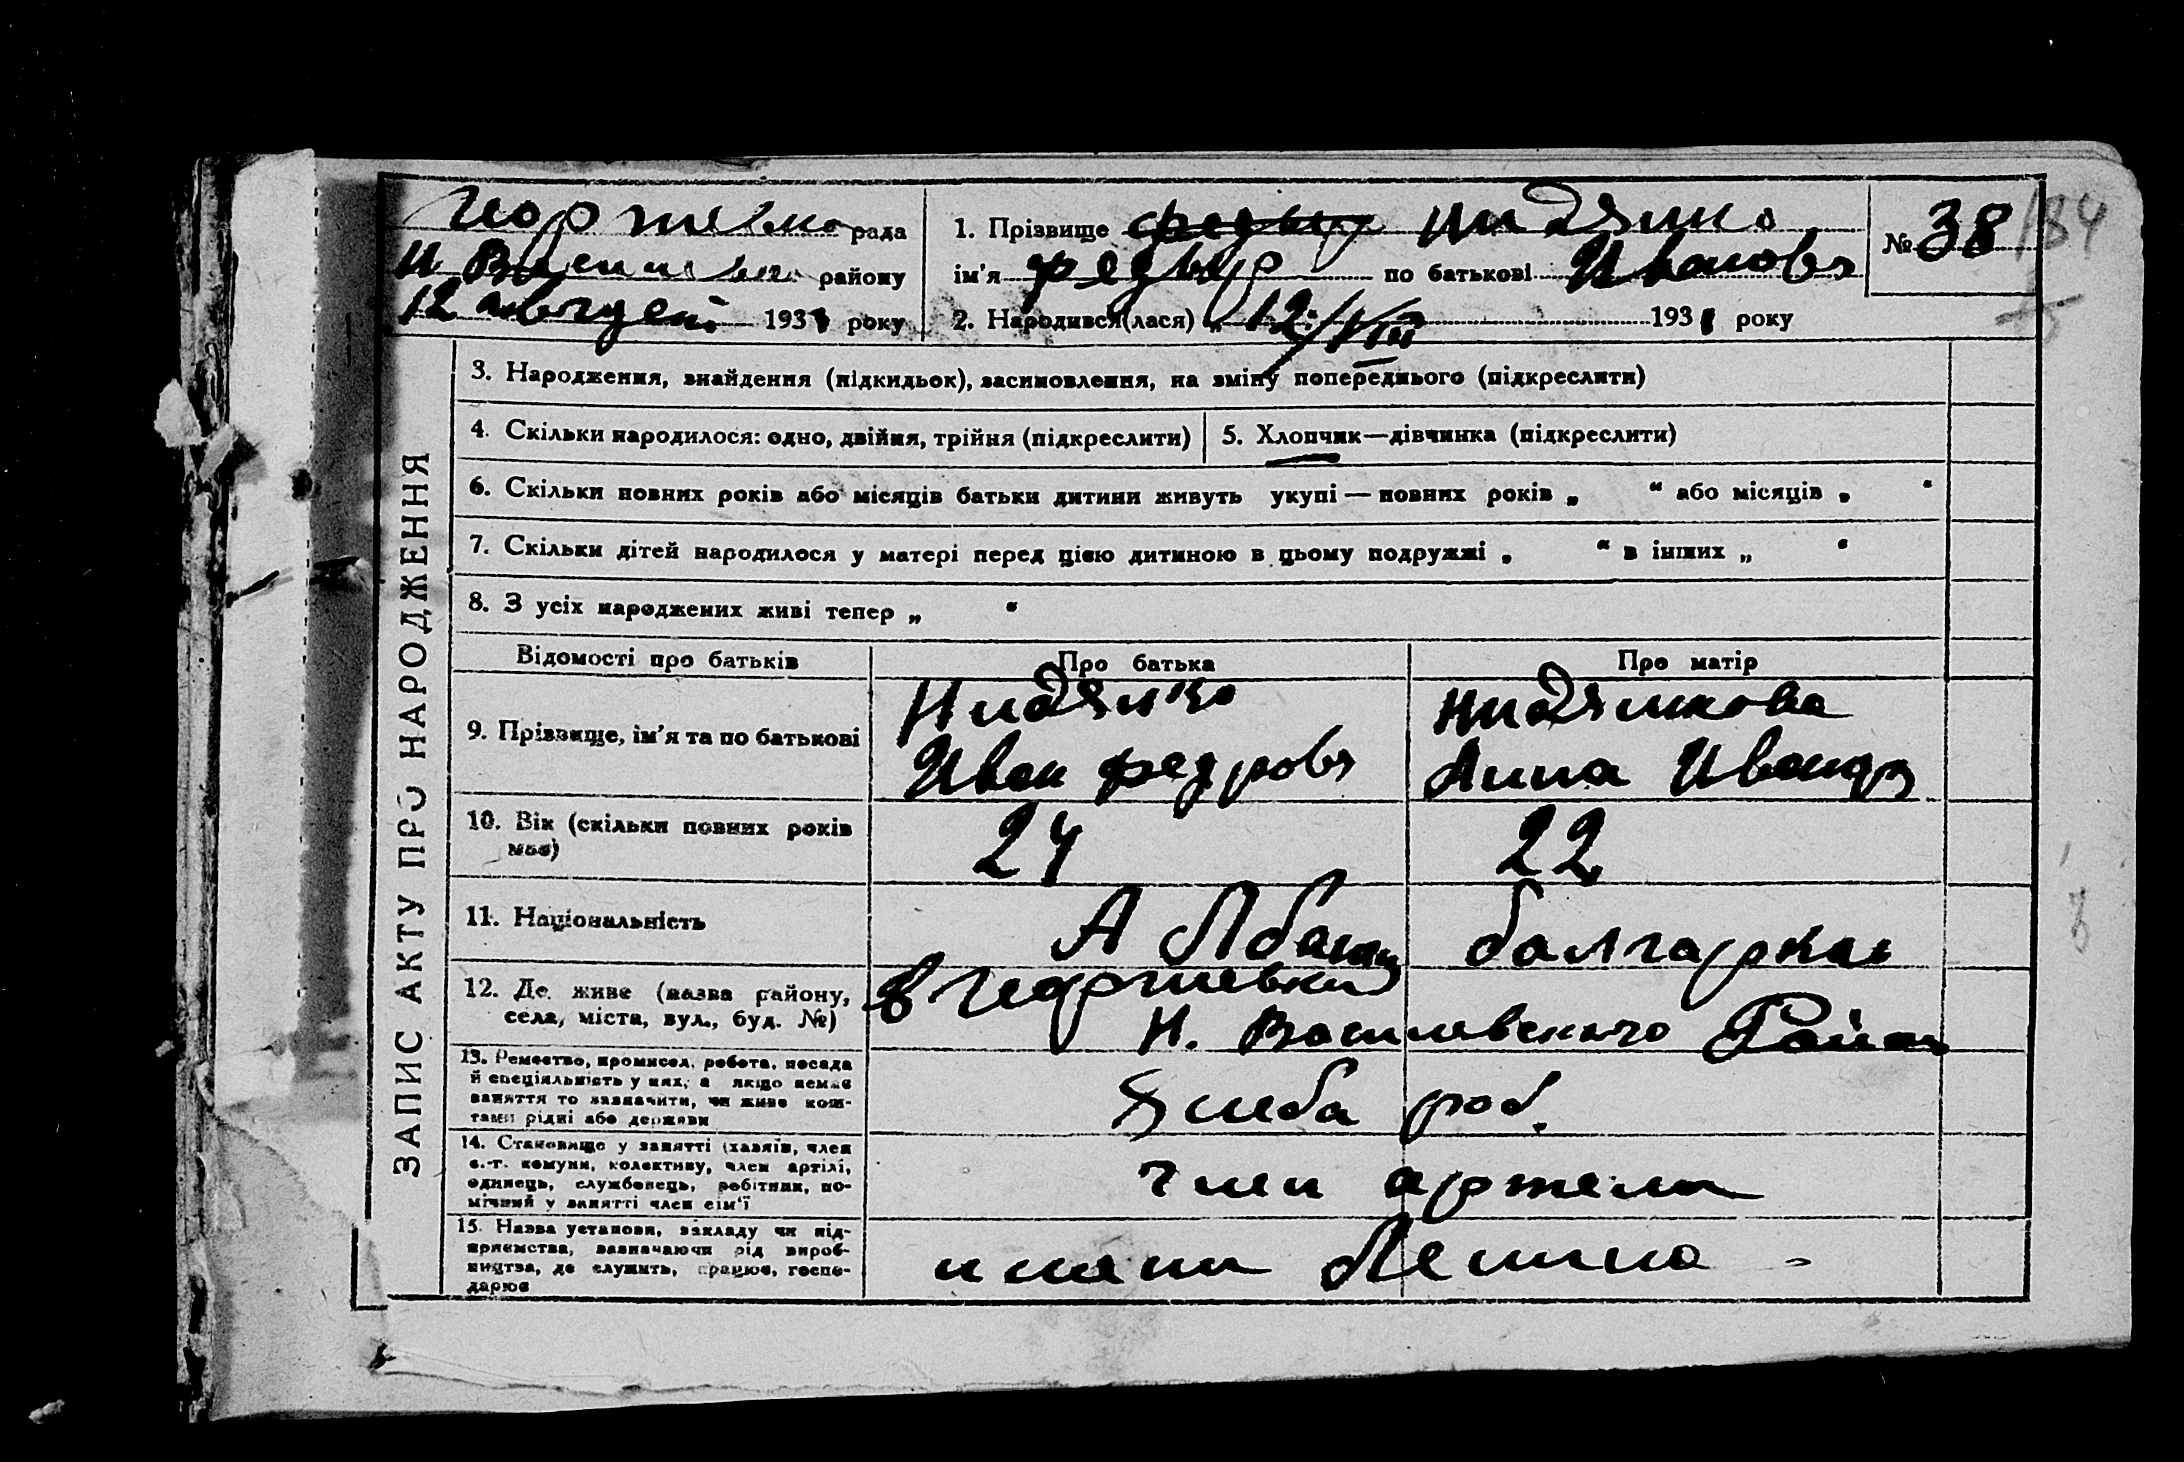 рада
района
12 августа 193 року
1. Прізвище
ім'я Федыр по батькові Иванов
2. Народився(лася) „ 12/VIII 193 року
№ 38
184
3. Народження, знайдення (підкидьок), засиновлення, на зміну попереднього (підкреслити)
4. Скільки народилося: одно, двійня, трійня (підкреслити)
5. Хлопчик—дівчинка (підкреслити)
6. Скільки повних років або місяців батьки дитини живуть укупі — повних років „ “ або місяців „ “
7. Скільки дітей народилося у матері перед цією дитиною в цьому подружжі „ “ в інших „ “
8. З усіх народжених живі тепер „ “
ЗАПИС АКТУ ПРО НАРОДЖЕННЯ
Відомості про батьків
Про батька
Про матір
9. Прізвище, ім'я та по батькові
Иван Федров
Анна Иванов
10. Вік (скільки повних років
має)
24
22
11. Національність
Албанец
болгарка
12. Де живе (назва району,
села, міста, вул., буд. №)
в
Н. Василевского Район
13. Ремество, промисел, робота, посада
й спеціяльність у них, а якщо немає
заняття то зазначити, чи живе кош-
тами рідні або держави
хлеба роб.
14. Становище у занятті (хазяїн, член
с.-г. комуни, колективу, член артілі,
одинець, службовець, робітник, по-
мічний у занятті член сім'ї
член артели
15. Назва установи, закладу чи під-
приємства, зазначаючи рід вироб-
ництва, де служить, працює, госпо-
дарює
имени Ленина -